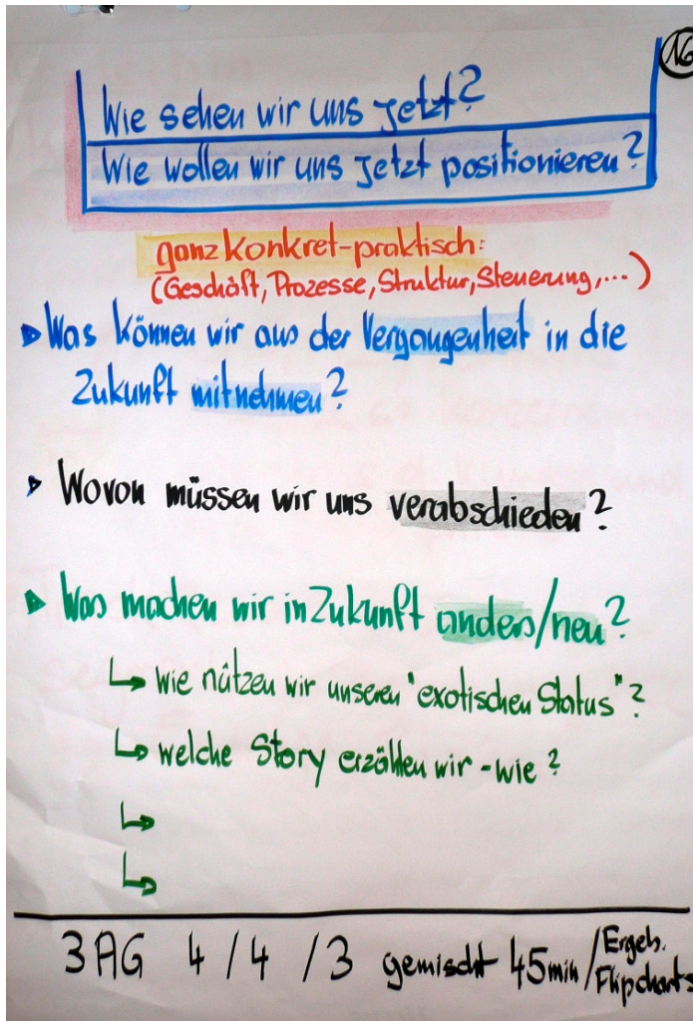 N6
Wie sehen wir uns jetzt?
Wie wollen wir uns jetzt positionieren?
ganz konkret-praktisch:
(Geschäft, Prozesse, Struktur, Steuerung,...)
Was können wir aus der Vergangenheit in die
Zukunft mitnehmen?
Wovon müssen wir uns verabschieden?
Was machen wir in Zukunft anders/neu?
wie nützen wir unseren "exotischen Status"?
welche Story erzählen wir - wie?
3 AG 4 / 4 / 3 gemischt 45min / Ergeb.
Flipcharts